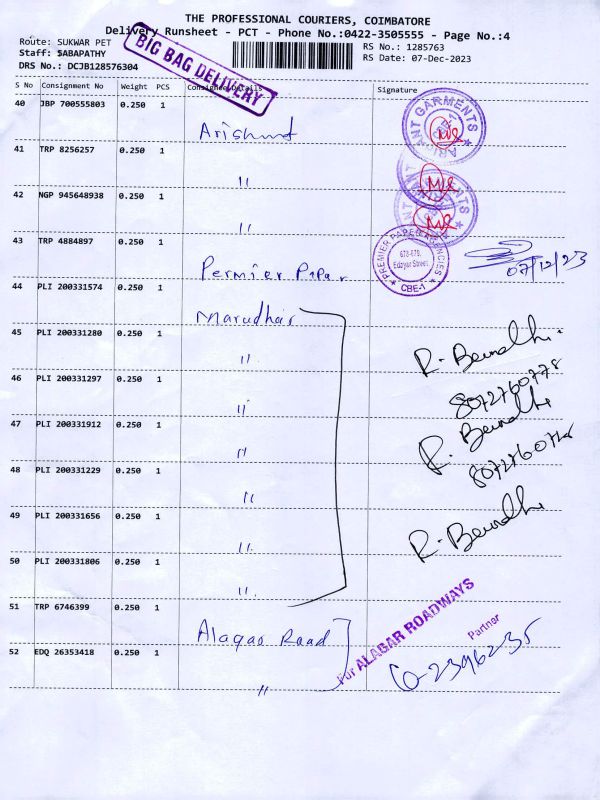 THE PROFESSIONAL COURIERS, COIMBATORE
Delivery Runsheet - PCT - Phone No.:0422-3505555 - Page No.:4
Route: SUKWAR PET
Staff: SABAPATHY
DRS No.: DCJB128576304
RS No.: 1285763
RS Date: 07-Dec-2023
BIG BAG DELIVERY
S No Consignment No Weight PCS Consignee Details Signature
40 JBP 700555803 0.250 1
GARMENTS
41 TRP 8256257 0.250 1 "
42 NGP 945648938 0.250 1 "
43 TRP 4884897 0.250 1 Permier Papar
PREMIER PAPER AGENCIES
678-679,
Edayar Street
CBE-1
07/12/23
44 PLI 200331574 0.250 1 Marudhar
45 PLI 200331280 0.250 1 "
46 PLI 200331297 0.250 1 "
8072760778
47 PLI 200331912 0.250 1 "
48 PLI 200331229 0.250 1 "
49 PLI 200331656 0.250 1 "
50 PLI 200331806 0.250 1 "
51 TRP 6746399 0.250 1 Alagar Road
For ALAGAR ROADWAYS
Partner
52 EDQ 26353418 0.250 1 "